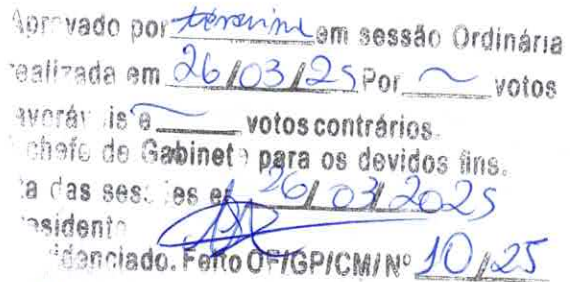 Aprovado por em sessão Ordinária
realizada em 26/03/25 Por ~ votos
favoráveis e ~ votos contrários.
chefe de Gabinete para os devidos fins.
das sessões 26/03/2025
Presidente
Feito OF/GP/CM/Nº 10/25